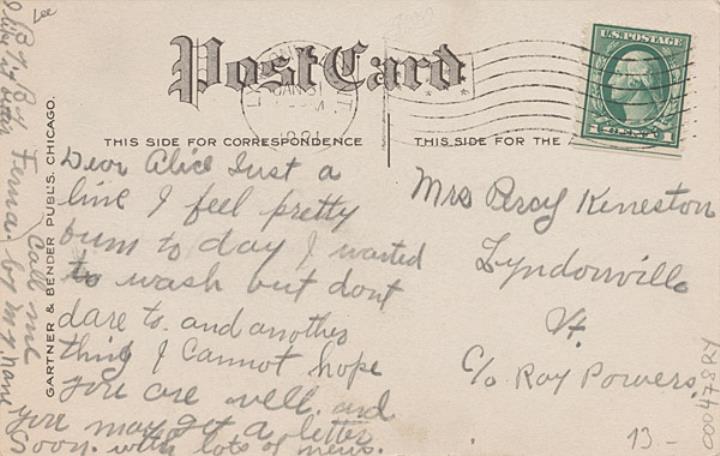 Lee
Post Card
JAN 31
U.S. POSTAGE
1 CENT 1
THIS SIDE FOR CORRESPONDENCE
THIS SIDE FOR THE
GARTNER & BENDER PUBL'S. CHICAGO.
Dear Alice Just a
line I feel pretty
bum to day I wanted
to wash but dont
dare to. and another
thing I cannot hope
you are well. and
you may get a letter
soon. with lots of news.
By By Ferna.
Call me
by my name
I like it better
Mrs Percy Keneston
Lyndonville
Vt.
C/o Ray Powers.
13 -